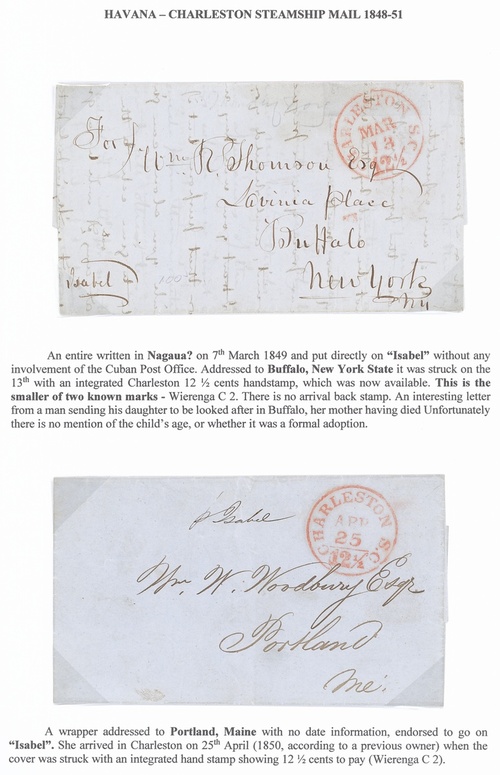 HAVANA – CHARLESTON STEAMSHIP MAIL 1848-51
CHARLESTON S.C.
MAR
13
12½
For
Wm R. Thomson Esq
Lavinia Place
Buffalo
New York
Isabel
An entire written in Nagaua? on 7th March 1849 and put directly on “Isabel” without any
involvement of the Cuban Post Office. Addressed to Buffalo, New York State it was struck on the
13th with an integrated Charleston 12 ½ cents handstamp, which was now available. This is the
smaller of two known marks - Wierenga C 2. There is no arrival back stamp. An interesting letter
from a man sending his daughter to be looked after in Buffalo, her mother having died Unfortunately
there is no mention of the child's age, or whether it was a formal adoption.
CHARLESTON S.C.
APR
25
12½
p Isabel
Wm. W. Woodbury Esqr
Portland
Me.
A wrapper addressed to Portland, Maine with no date information, endorsed to go on
“Isabel”. She arrived in Charleston on 25th April (1850, according to a previous owner) when the
cover was struck with an integrated hand stamp showing 12 ½ cents to pay (Wierenga C 2).